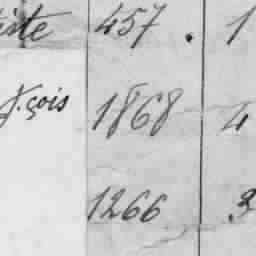 iste 457. 1
f.çois 1868 4
1266 3